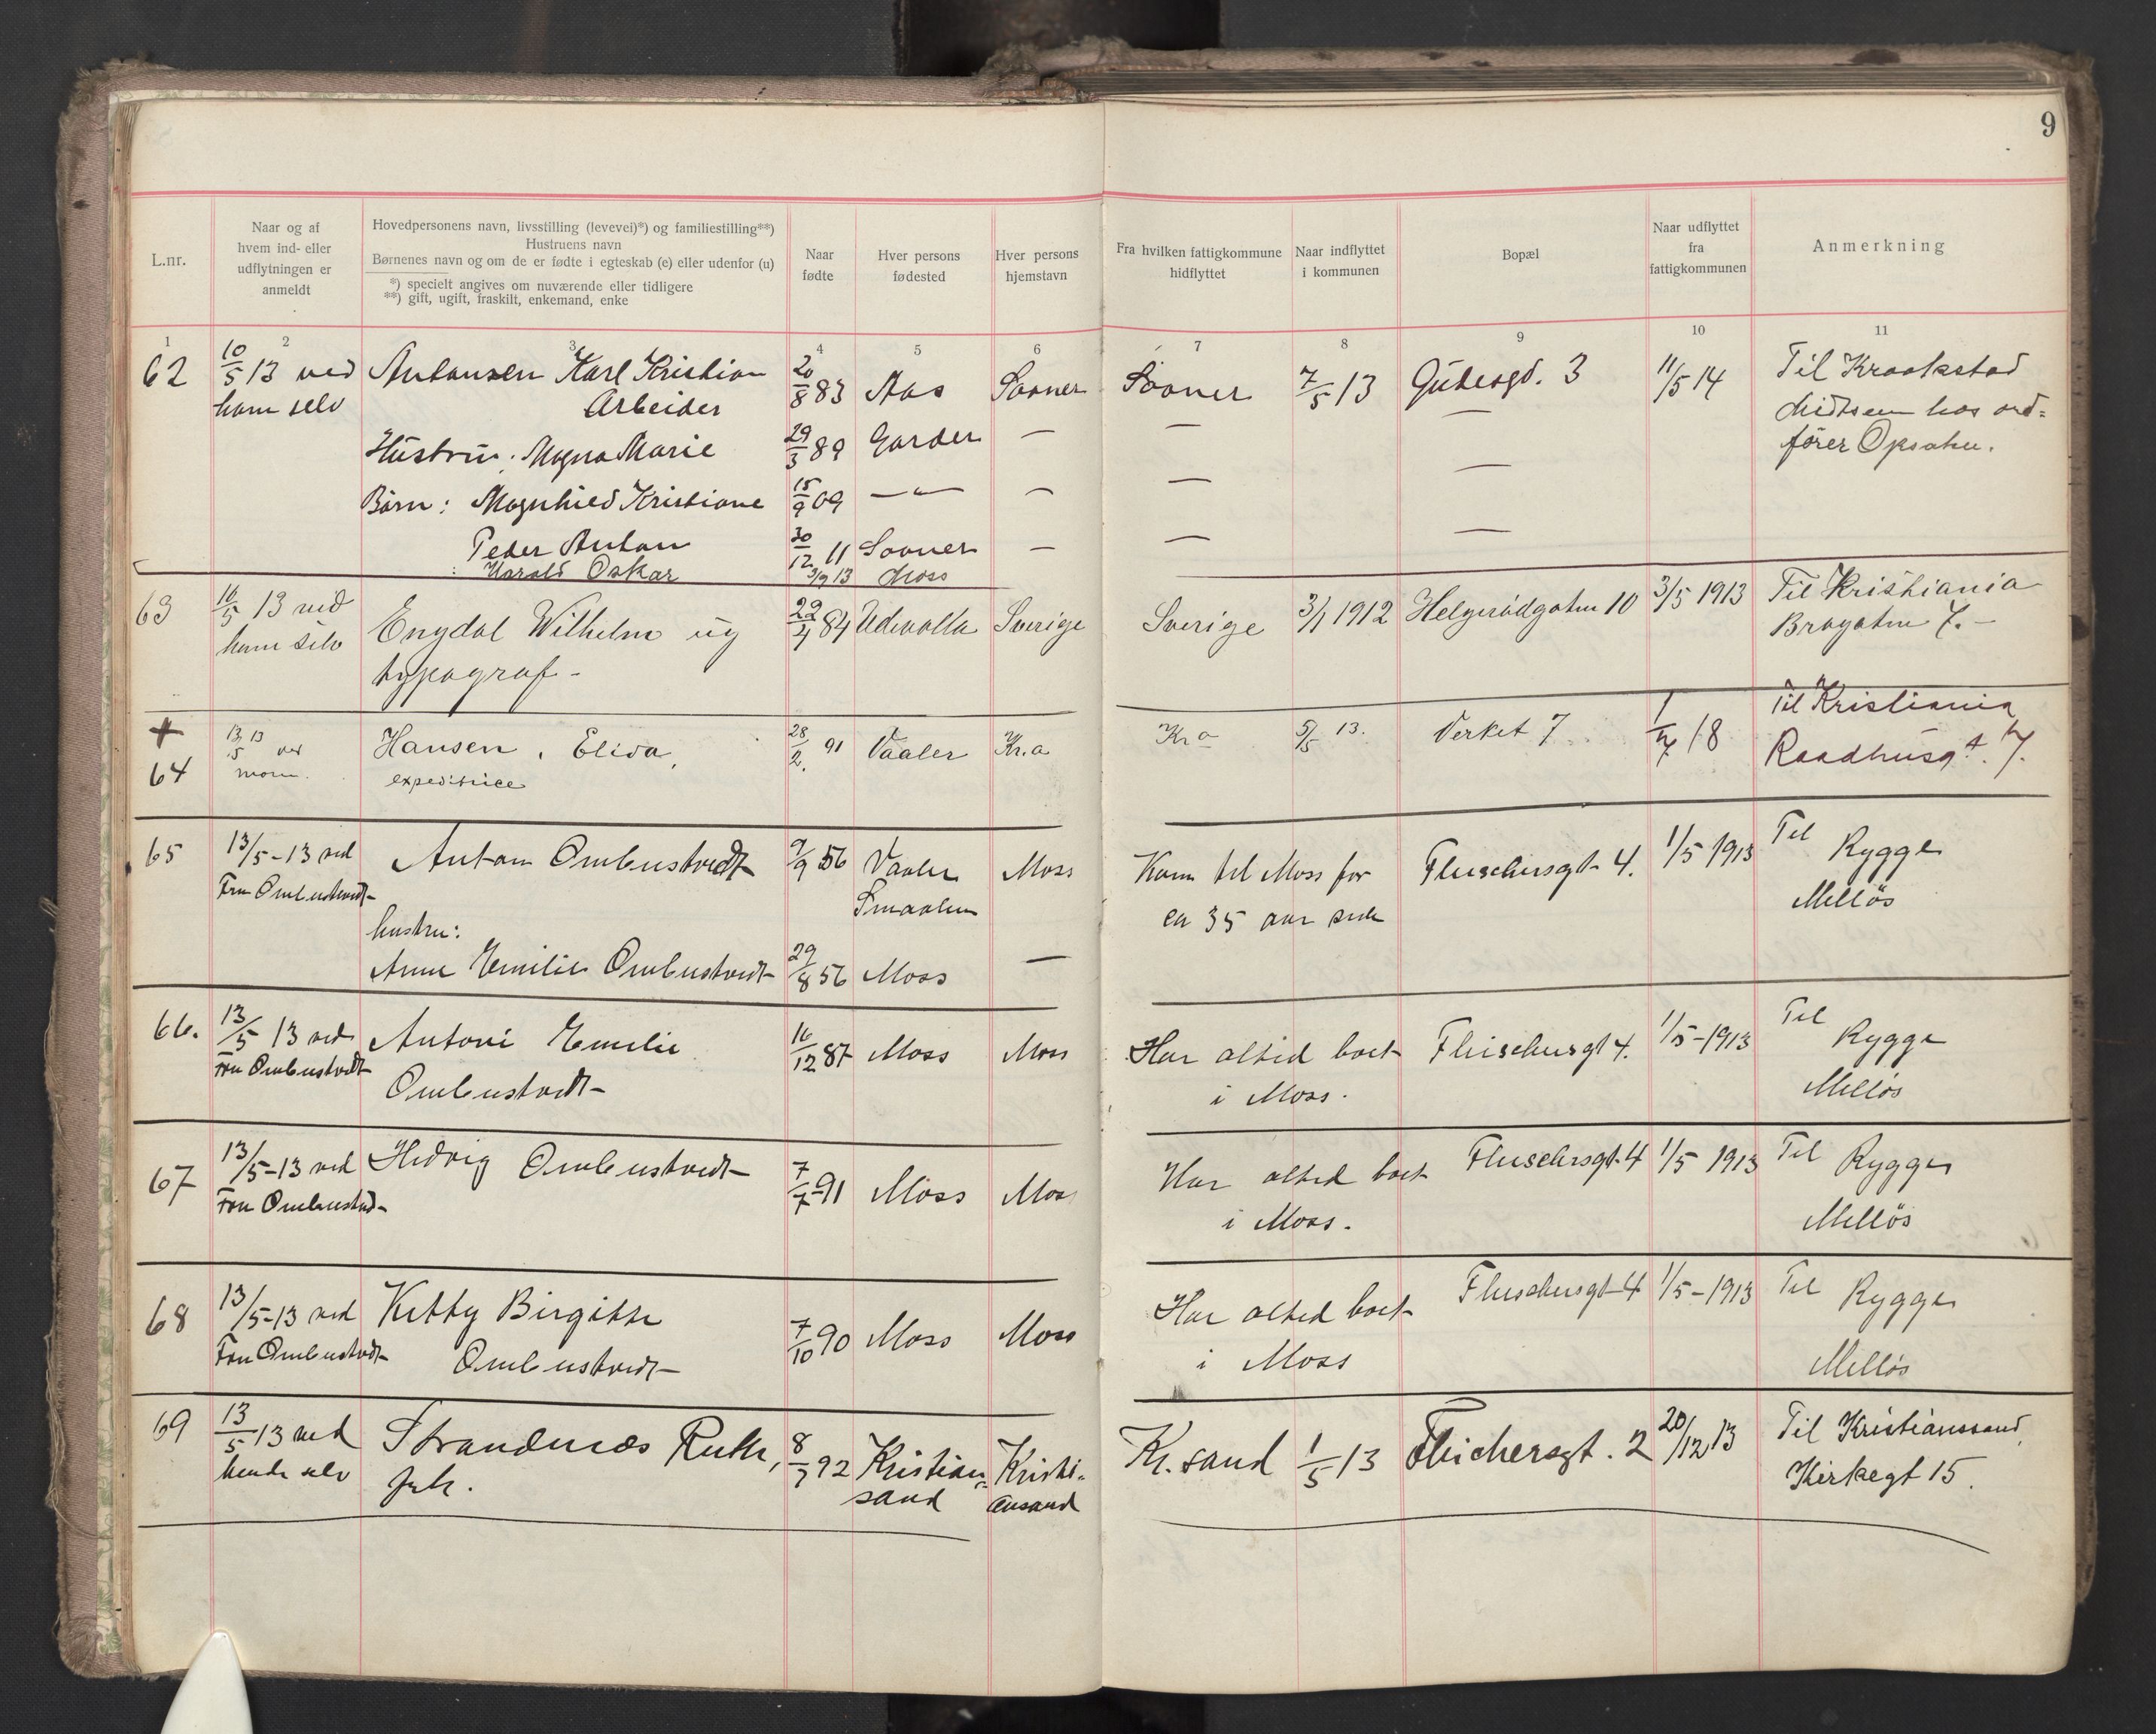 9
L.nr.
Naar og af
hvem ind- eller
udflytningen er
anmeldt
Hovedpersonens navn, livsstilling (levevei)*) og familiestilling**)
Hustruens navn
Børnenes navn og om de er fødte i egteskab (e) eller udenfor (u)
*) specielt angives om nuværende eller tidligere
**) gift, ugift, fraskilt, enkemand, enke
Naar
fødte
Hver persons
fødested
Hver persons
hjemstavn
Fra hvilken fattigkommune
hidflyttet
Naar indflyttet
i kommunen
Bopæl
Naar udflyttet
fra
fattigkommunen
Anmerkning
1 2 3 4 5 6 7 8 9 10 11
62 10/5 13 ved Antonsen Karl Kristian 20/8 83 Aas Sooner Sooner 7/5 13 Gudesgd. 3 11/5 14 Til Kraakstad
ham selv Arbeider hos ord=
fører Opsahu.
Hustru: Magna Marie 29/3 89 Garder — — —
Børn: Magnhild Kristiane 15/9 09 —"— — — —
Peder Anton 30/12 11 Sooner — — —
: Harald Oskar 3/9 13 Moss
63 16/5 13 ved Engdal Wilhelm ug 29/4 84 Udevalla Sverige Sverige 3/1 1912 Helgerødgaten 10 3/5 1913 Til Kristiania
ham selv typograf - Brogaten 7. -
+ 13/5 13 ved Hansen, Elida, 28/2. 91 Vaaler Kr.a Kra 5/5 13. Verket 7 1/4 18 Til Kristiania
64 morn. expeditrice Raadhusgt. 7.
65 13/5-13 ved Anton Ombustvedt 9/9 56 Vaaler Moss Kom til Moss for Fleischersgt 4. 1/5 1913 Til Rygge
Fru Ombustvedt Smaalen ca 35 aar side Melløs
hustru:
Anne Emilie Ombustvedt 29/8 56 Moss —
66. 13/5 13 ved Antoni Emilie 16/12 87 Moss Moss Har altid boet Fleischersgt 4. 1/5-1913 Til Rygge
Fru Ombustvedt Ombustvedt i Moss. Melløs
67 13/5-13 ved Hedvig Ombustvedt 7/7-91 Moss Moss Har altid boet Fleischersgt. 4 1/5 1913 Til Rygge
Fru Ombustvedt i Moss. Melløs
68 13/5-13 ved Kitty Birgitte 7/10 90 Moss Moss Har altid boet Fleischersgt 4 1/5-1913 Til Rygge
Fru Ombustvedt Ombustvedt i Moss Melløs
69 13/5 13 ved Strandnæs Ruth, 8/7 92 Kristian= Kristi- Kr.sand 1/5 13 Fleichersgt. 2 20/12 13 Til Kristianssand,
hende selv frk. sand ansand Kirkegt 15.